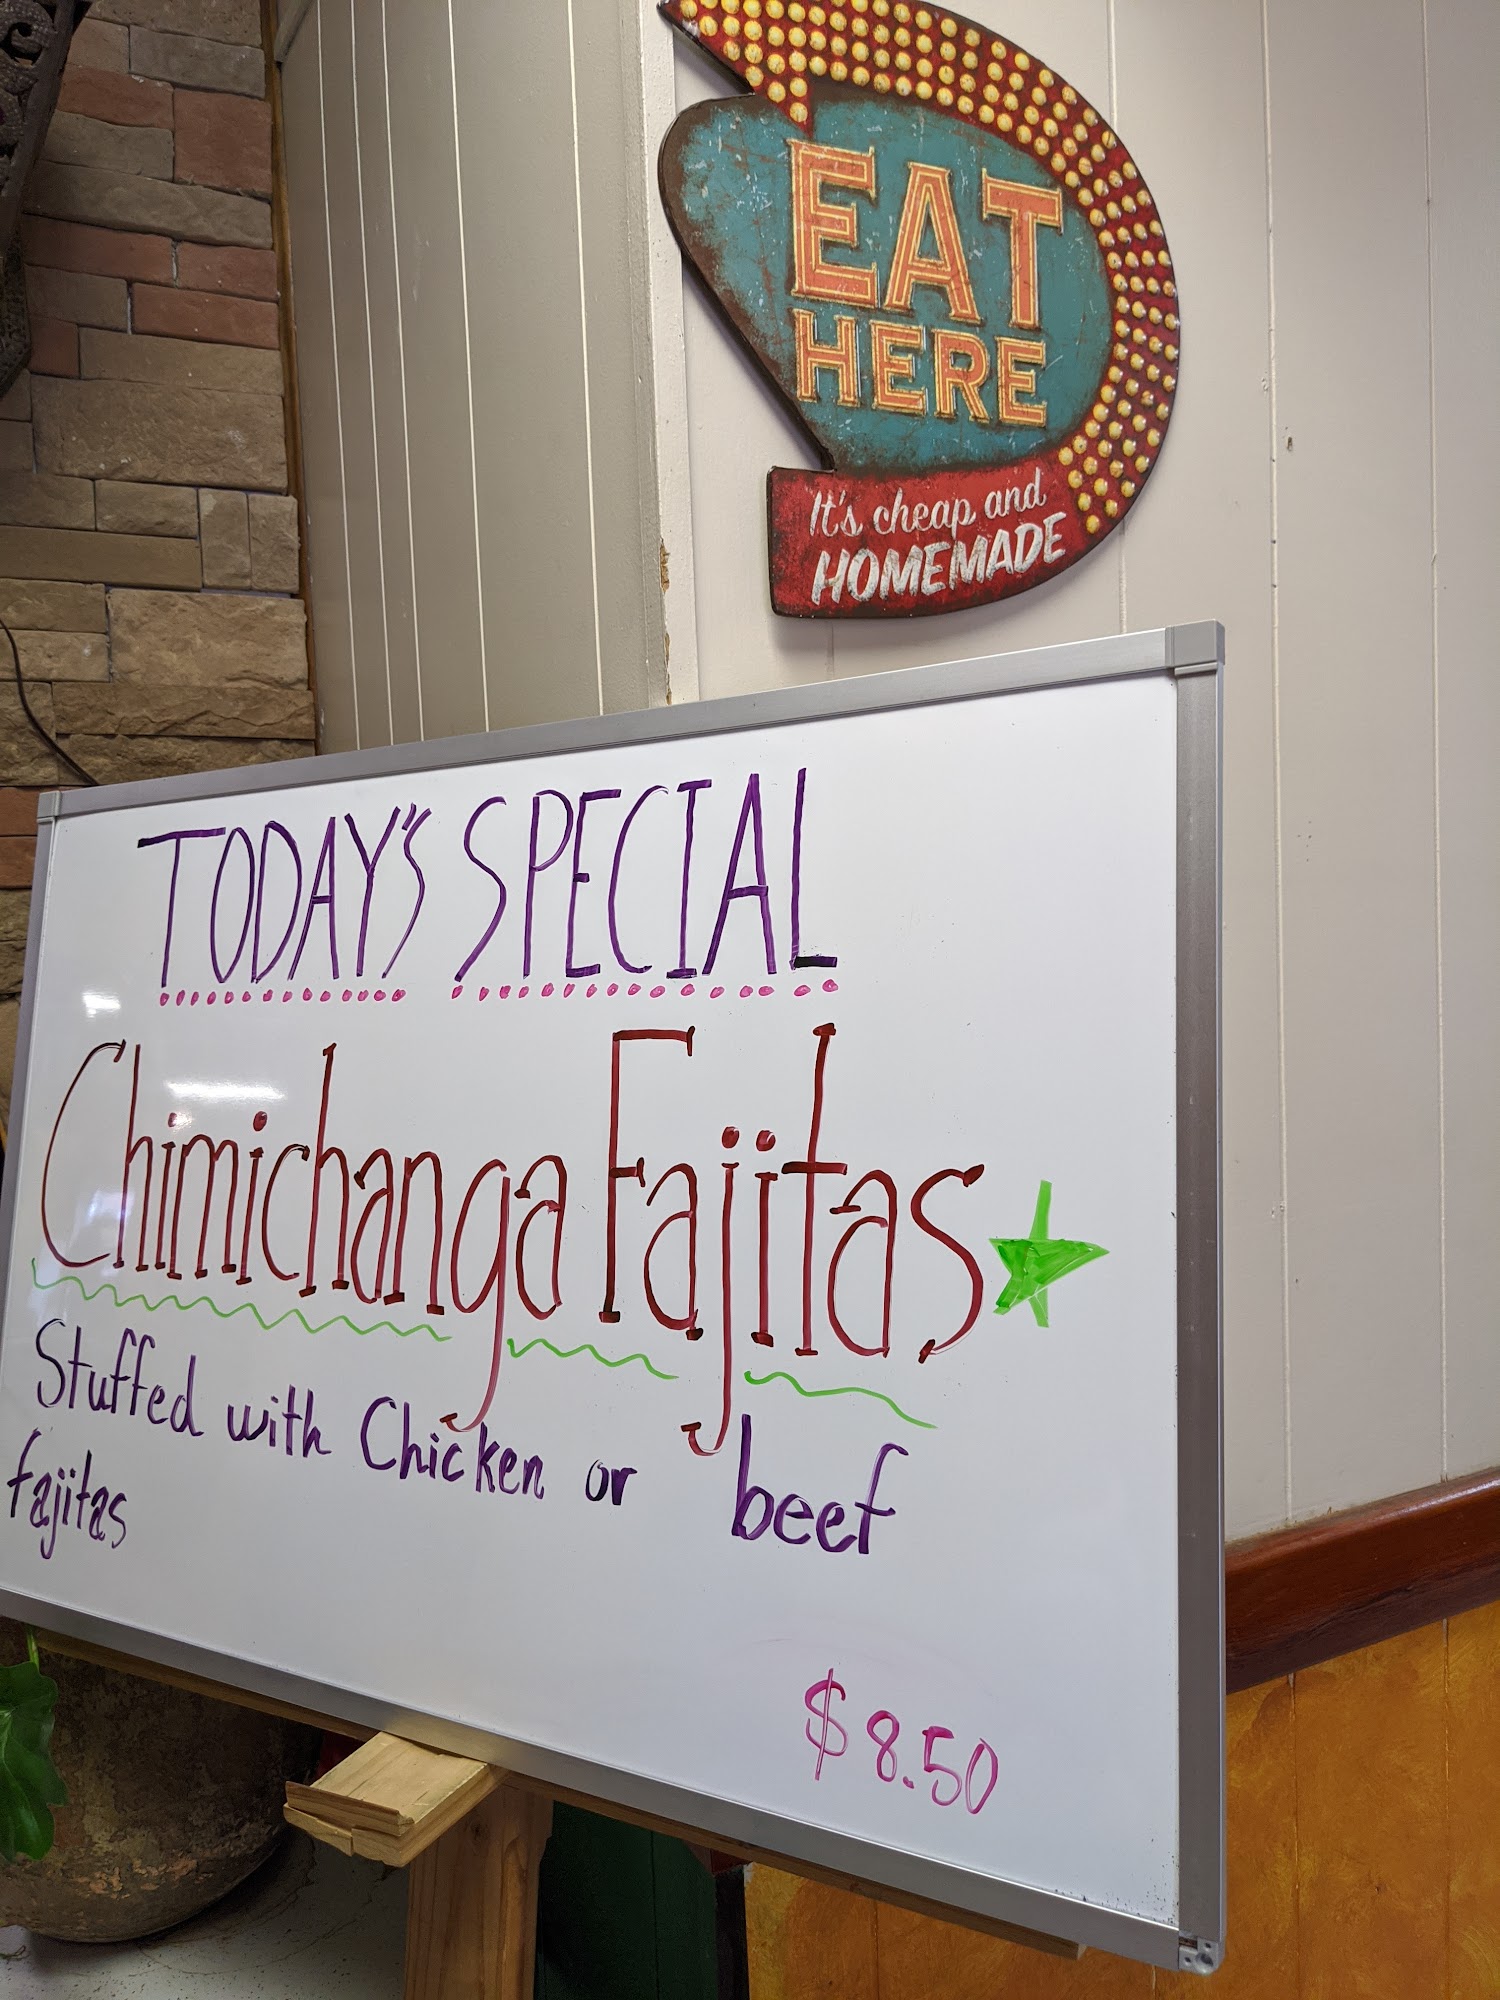 EAT
HERE
It's cheap and
HOMEMADE
TODAY'S SPECIAL
Chimichanga Fajitas
Stuffed with Chicken or beef
fajitas
$8.50